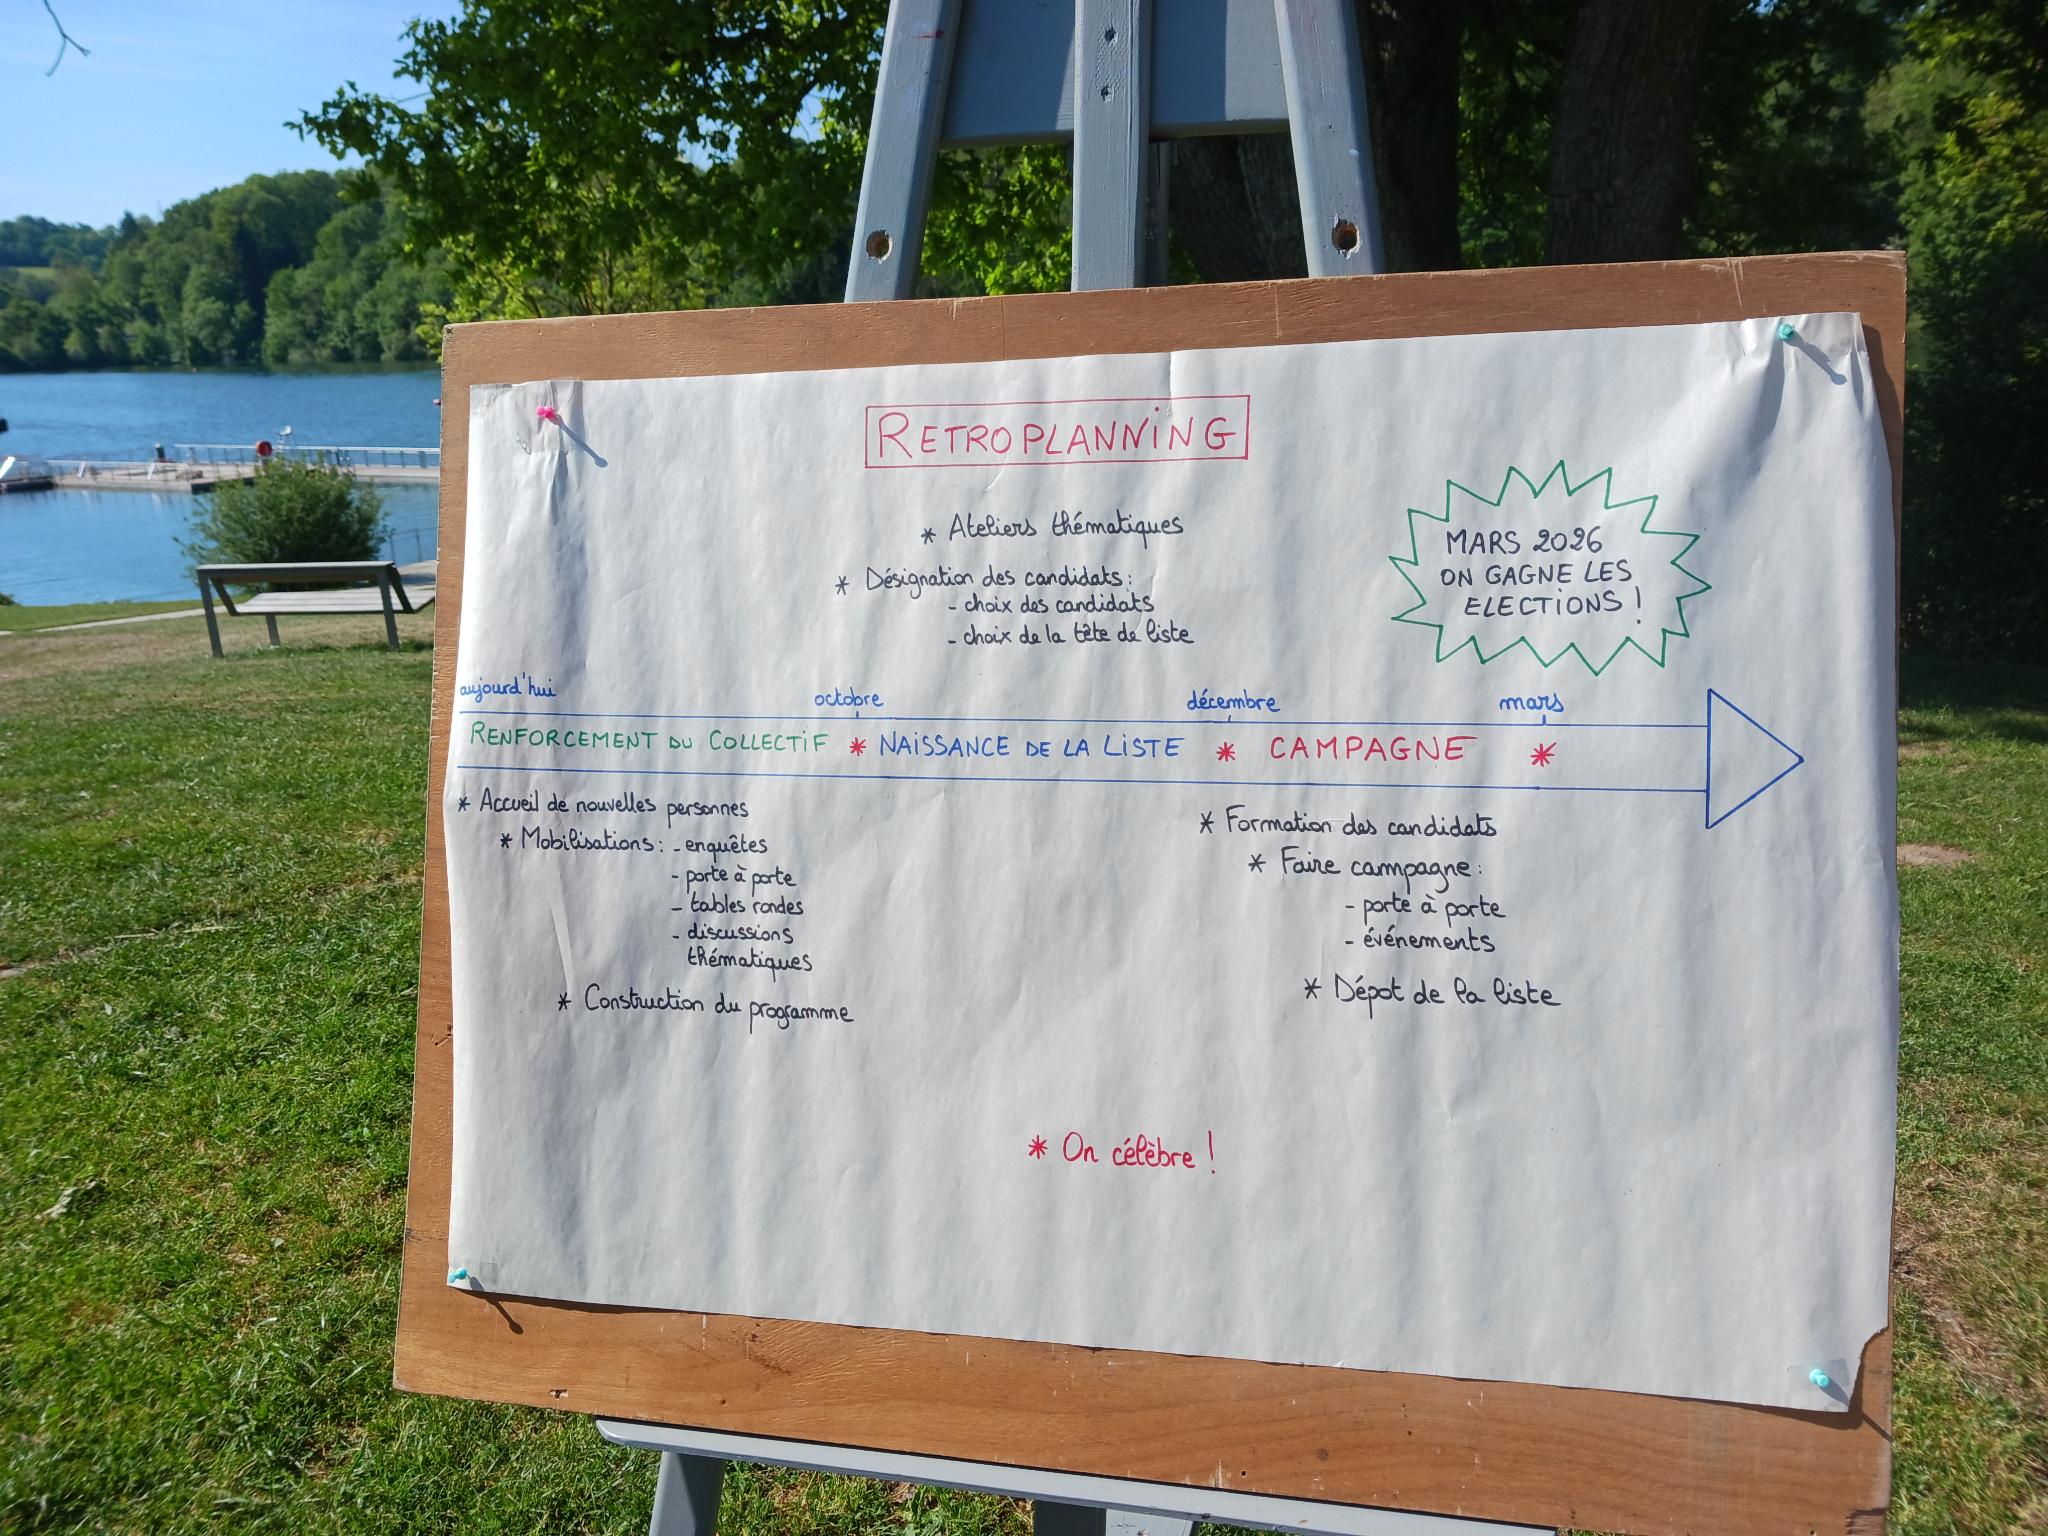 RETROPLANNING
* Ateliers thématiques
* Désignation des candidats :
- choix des candidats
- choix de la tête de liste
MARS 2026
ON GAGNE LES
ELECTIONS !
aujourd'hui octobre décembre mars
RENFORCEMENT DU COLLECTIF * NAISSANCE DE LA LISTE * CAMPAGNE *
* Accueil de nouvelles personnes
* Mobilisations : - enquêtes
- porte à porte
- tables rondes
- discussions
thématiques
* Construction du programme
* Formation des candidats
* Faire campagne :
- porte à porte
- événements
* Dépot de la liste
* On célèbre !